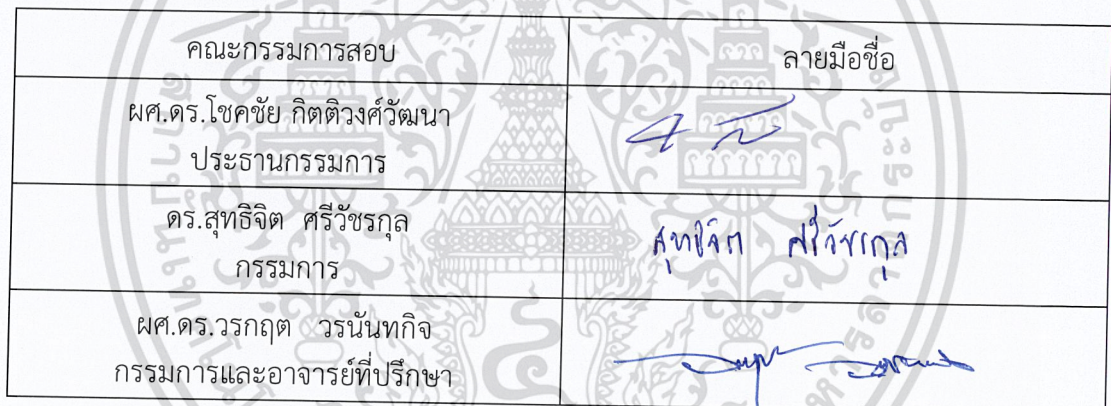 คณะกรรมการสอบ ลายมือชื่อ
ผศ.ดร.โชคชัย กิตติวงศ์วัฒนา
ประธานกรรมการ
ดร.สุทธิจิต ศรีวัชรกุล สุทธิจิต ศรีวัชรกุล
กรรมการ
ผศ.ดร.วรกฤต วรนันทกิจ
กรรมการและอาจารย์ที่ปรึกษา